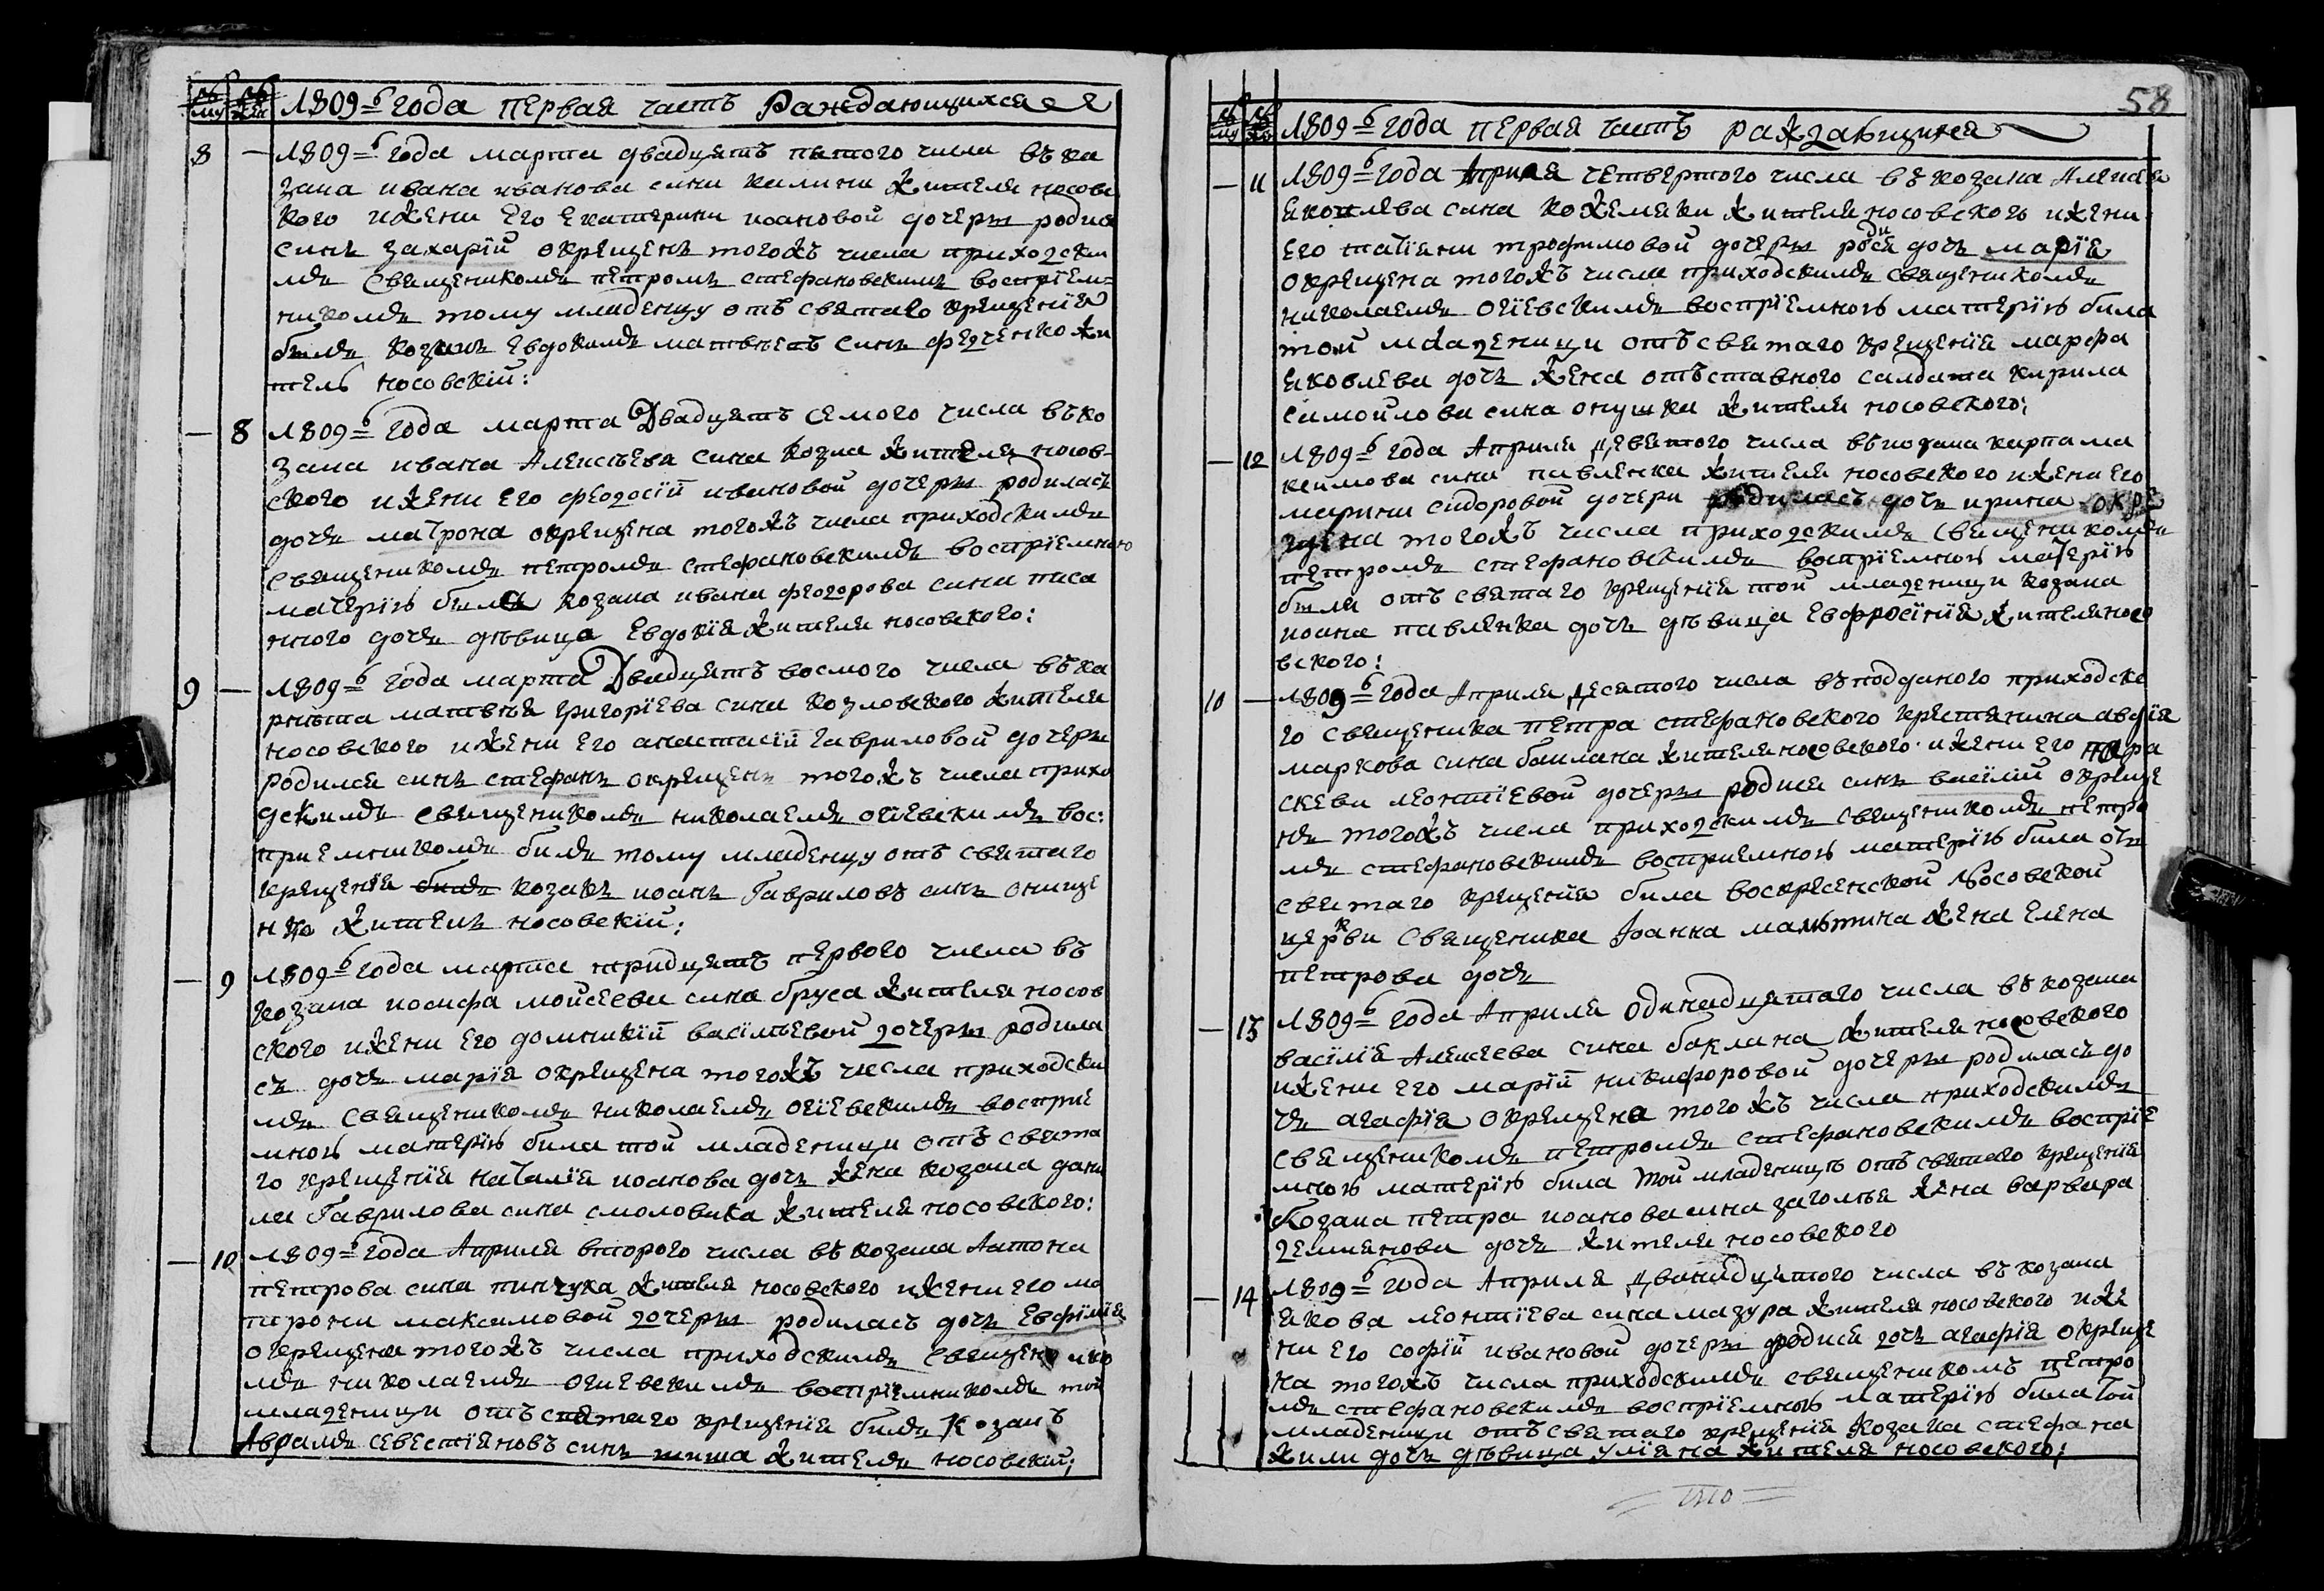 му жен 1809-б года первая часть Раждающихся
8 — 1809-б года марта двадцять пятого числа въ ка
зака ивана иванова сина калини жителя носовс
кого и жени Его Екатерини иоановой дочеры родися
синъ захарій окрещенъ тогожъ числа приходски
мъ Священикомъ петромъ стефановскимъ воспріем=
никомъ тому младенцу отъ святаго крещенія
билъ козакъ Евдокимъ матвѣевъ синъ федченко жи
тель носовскій:
— 8 1809-б года марта Двадцять семого числа въ ко
зака ивана Алексѣева сина козла жителя носов-
ского и жени Его феодосій ивановой дочеры родилась
дочь матрона окрещена тогожъ числа приходскимъ
священикомъ петромъ стефановскимъ воспріемною
матерію била козака ивана феодорова сина писа
ного дочь дѣвица Евдокія жителя носовского:
9 — 1809-б года марта Двадцять восмого числа въ ка
матвѣя григоріева сина козловского жителя
носовского и жени Его анастасій гавриловой дочеры
родился синъ стефанъ окрещенъ тогожъ числа прихо
дскимъ священикомъ николаемъ огіевскимъ вос:
приемникомъ билъ тому младенцу отъ святаго
крещенія билъ козакъ иоанъ Гавриловъ синъ онище
нко жителъ носовскій;
— 9 1809-б года марта тридцять первого числа въ
козака иосифа мойсеева сина бруса жителя носов
ского и жени Его домникій васільевой дочеры родила
съ дочь марія окрещена тогожъ числа приходски
мъ священикомъ николаемъ огіевскимъ восприе
мною матерію била той младеници отъ свята
го крещенія наталія иоанова дочь жена козака дани
ла Гаврилова сина смоловика жителя носовского:
— 10 1809-б года Априля второго числа въ козака Антона
петрова сина пинчука жителя носовского и жени его ма
трони максимовой дочеры родилась дочь Евфімія
окрещена тогожъ числа приходскимъ
мъ николаемъ огиевскимъ воспріемникомъ той
младеници отъ святаго крещенія билъ козакъ
Аврамъ севестіяновъ синъ жителъ носовскій;
58
му же 1809-б года первая часть раждающихся
— 11 1809-б года Априля четвертого числа въ козака
яковлева сина кожемяки жителя носовского и жени
его татіяни трофимовой дочеры родися дочь марія
окрещена тогожъ числа приходскимъ священикомъ
николаемъ огіевскимъ воспріемною матерію била
той младеници отъ святаго крещенія марфа
яковлева дочь жена отъставного салдата кирила
самойлова сина онушка жителя носовского;
— 12 1809-б года Априля Девятого числа въ козака карпа ма
ксимова сина павленка жителя носовского и жени Его
марини сидоровой дочери родилась дочь ирина окре
щена тогожъ числа приходскимъ священикомъ
петромъ стефановскимъ воспріемною матерію
била отъ святаго крещенія той младеници козака
иоана павленка дочь дѣвица Евфросінія жителя носо
вского:
10 — 1809-б года Априля Десятого числа въ подданого приходско
го священика петра стефановского крестянина авдія
маркова сина баклана жителя носовского и жени Его пара
скеви леонтіевой дочеры родися синъ васілій окреще
нъ тогожъ числа приходскимъ священикомъ петро
мъ стефановскимъ восприемною матерію била отъ
святаго крещенія била воскресенской Носовской
церкви Священика Іоанна жена Елена
петрова дочь
— 13 1809-б года Априля Одинадцятаго числа въ козака
васілія Алексеева сина баклана жителя носовского
и жени Его марій никифоровой дочеры родилась до
чь агафія окрещена того жъ числа приходскимъ
священикомъ петромъ стефановскимъ воспріе
мною матерію била той младеницѣ отъ святаго крещенія
Козака петра иоанова сина жена варвара
демянова дочь жителя носовского
— 14 1809-б года Априля Дванадцятого числа въ козака
якова леонтіева сина мазура жителя носовского и же
ни Его софій ивановой дочеры родися дочь агафія окреще
на тогожъ числа приходскимъ священикомъ петро
мъ стефановскимъ воспріемною матерію била той
младеници отъ святаго крещенія козака стефана
жили дочь дѣвица уліяна жителя носовского;